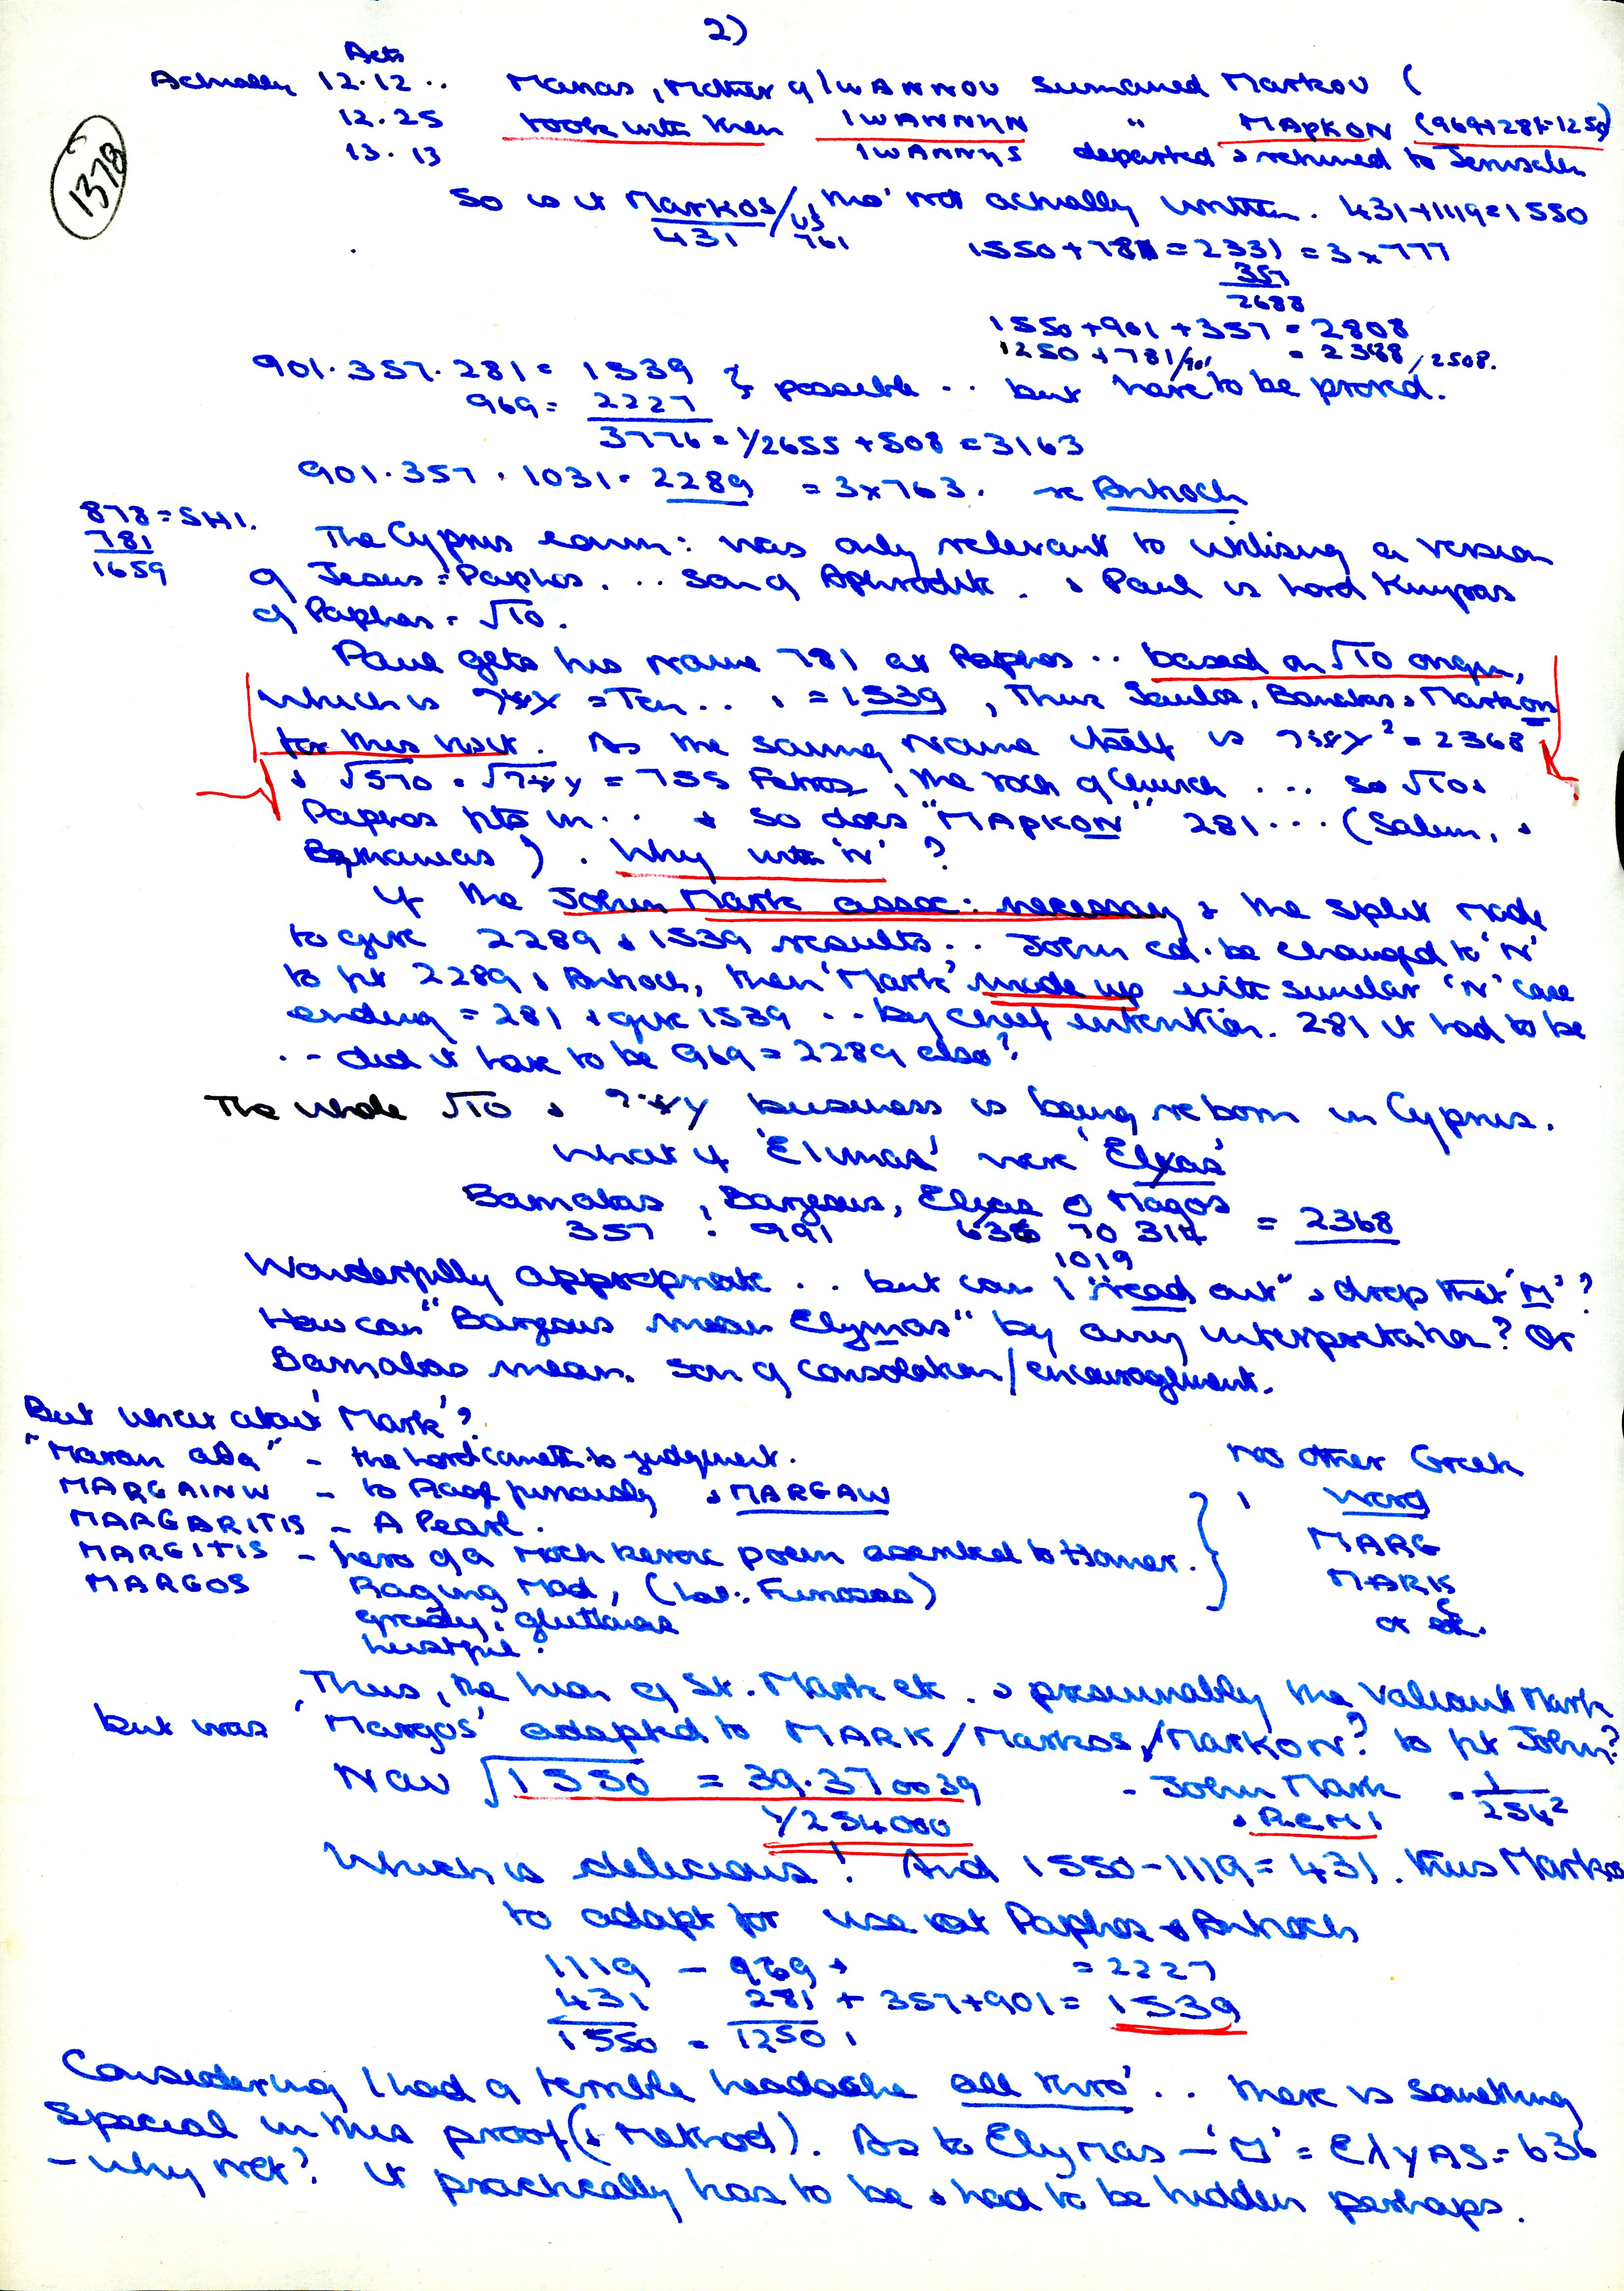 2)
Acts
Actually 12.12 .. Marias, Mother of IWANNOU surnamed Markou (
12.25 took with them IWANNHN " MARKON (969+281=1250)
13.13 IWANNYS departed & returned to Jerusalem
1378
So is it Markos/us, tho' not actually written. 431+1119=1550
431 761
1550+781=2331 = 3x777
357
2688
1550+901+357 = 2808
1250+781/901 = 2388/2508.
901.357.281 = 1539 } possible .. but have to be proved.
969 = 2227
3776 = 1/2655 + 508 = 3163
901.357.1031 = 2289 = 3x763. re Antioch
878 = SHI.
781
1659
The Cyprus conn: was only relevant to utilising a version
of Jesus = Paphos. .. son of Aphrodite. & Paul is Lord
of Paphos = √10.
Paul gets his name 781 at Paphos .. based on √10 origin,
which is = Ten .. & = 1539, Thus Saulos, Barnabas & Markon
for this visit. As the saving Name itself is ² = 2368
& √570 = √ = 755 Petros, the rock of Church ... so √10 &
Paphos fits in .. & so does "MARKON" 281 ... (Salem, &
). Why with 'N'?
If the John Mark assoc: necessary & the split made
to give 2289 & 1539 results .. John cd. be changed to 'N'
to fit 2289 & Antioch, then 'Mark' made up with similar 'N' case
ending = 281 & give 1539 .. by chief intention. 281 it had to be
.. did it have to be 969 = 2289 also?
The whole √10 & business is being reborn in Cyprus.
What if 'Elimas' were 'Elyas'
Barnabas, Barjesus, Elyas O Magos
357 : 991 636 70 314 = 2368
1019
Wonderfully appropriate .. but can I "read out" & drop that 'M'?
How can "Barjesus mean Elymas" by any interpretation? Or
Barnabas mean. Son of consolation/encouragement.
But what about 'Mark'?
"Maran aθa" - the Lord cometh to judgment.
MARGAINW - to Rage furiously & MARGAW
MARGARITIS - A Pearl.
MARGITIS - hero of a mock heroic poem ascribed to Homer.
MARGOS Raging Mad, (Lat. Furiosus)
greedy, gluttonous
lustful.
} No other Greek
word
MARG
MARK
or
Thus, the lion of St. Mark etc. & presumably the Valiant Mark
but was 'Margos' adapted to MARK/Markos/Markon? to fit John?
Now √1550 = 39.370039 - John Mark = 1/254²
1/254000 & REMI
Which is delicious! And 1550-1119=431. thus Markos
to adapt for use at Paphos & Antioch
1119 - 969 + = 2227
431 281 + 357+901 = 1539
1550 = 1250 !
Considering I had a terrible headache all thro' .. there is something
special in this proof (& Method). As to Elymas - 'M' = EλyAS = 636
- why not? it practically has to be & had to be hidden perhaps.